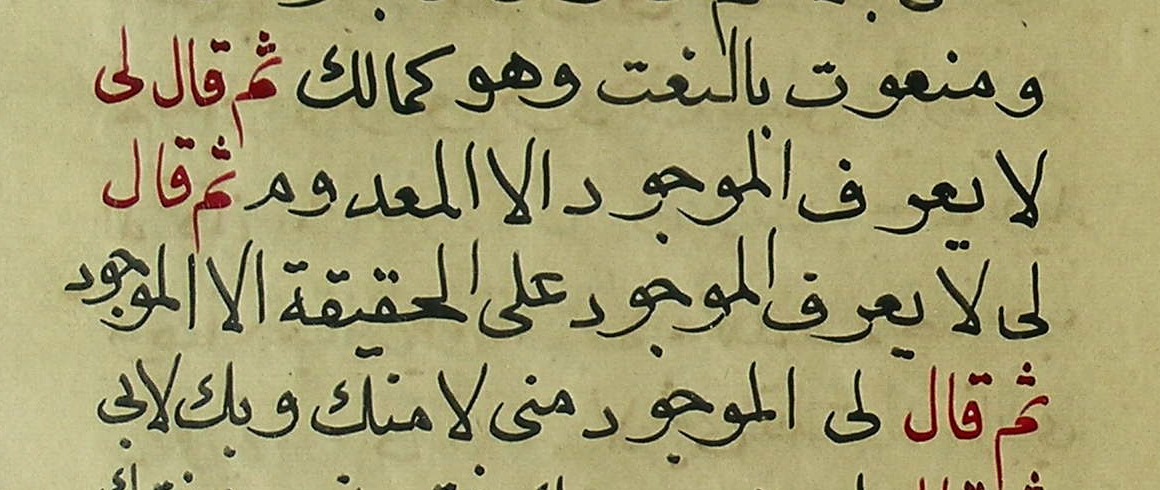 ومنعوت بالنعت وهو كمالك ثم قال لى
لا يعرف الموجود الا المعدوم ثم قال
لى لا يعرف الموجود على الحقيقة الا الموجود
ثم قال لى الموجود منى لا منك وبك لا بى